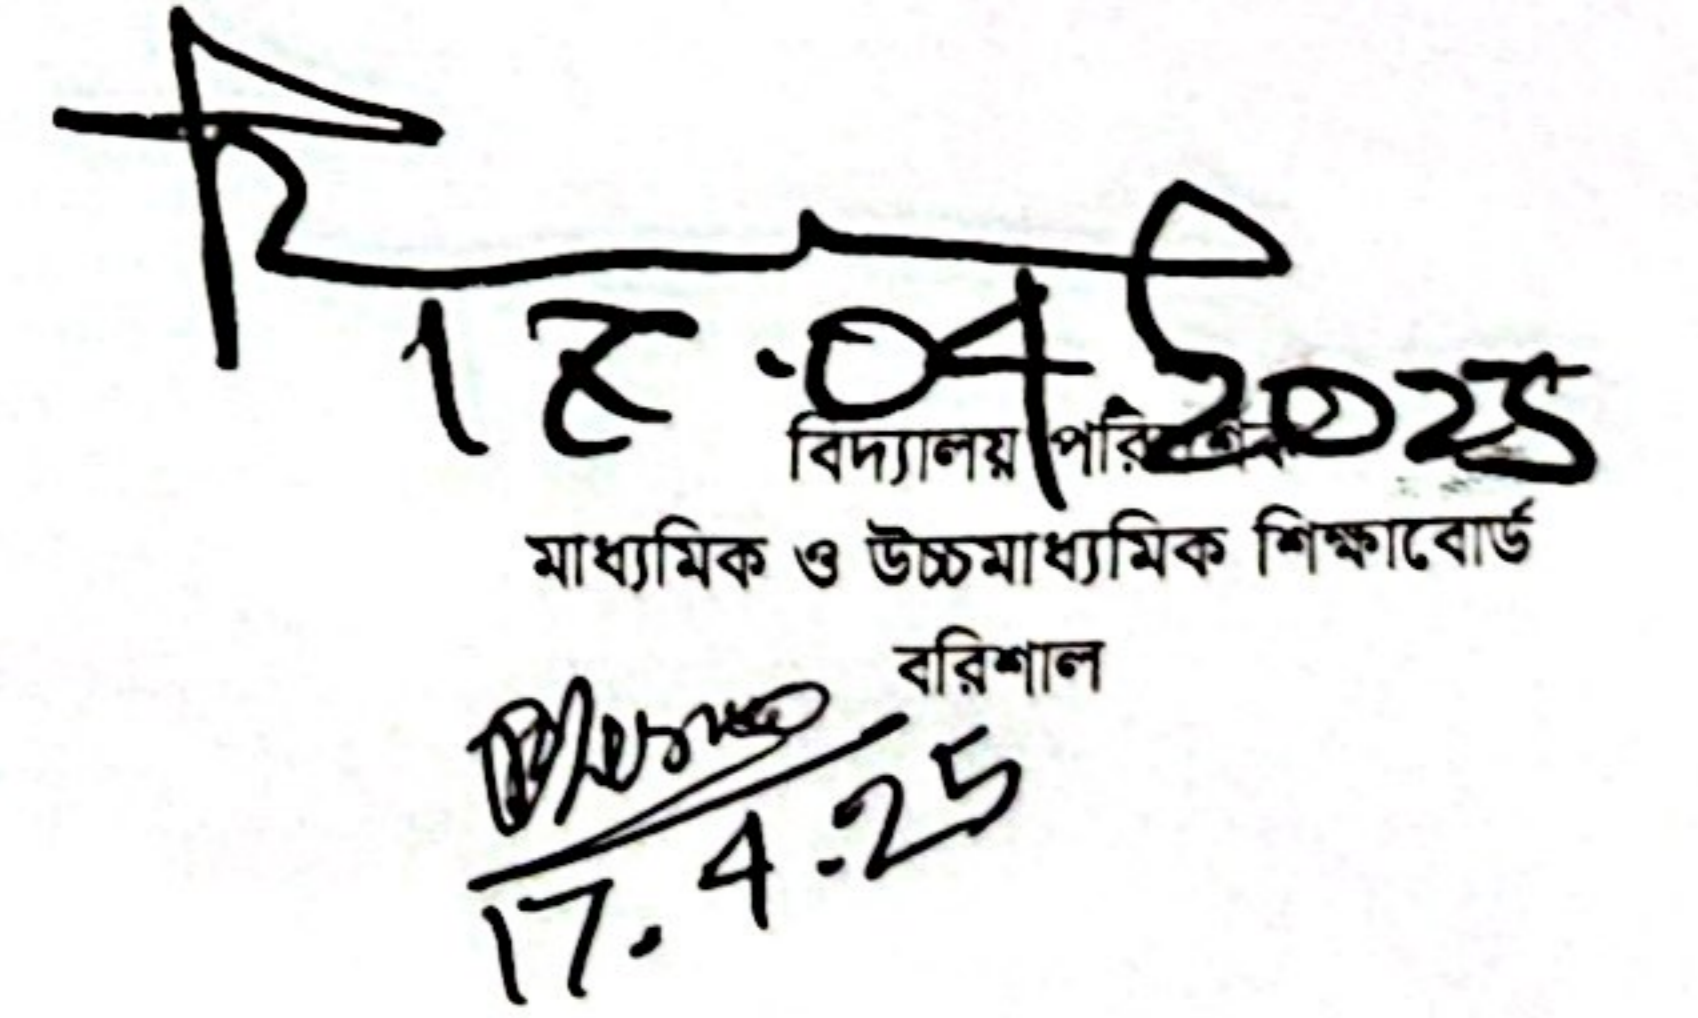 18.04.2025
বিদ্যালয় পরিদর্শক
মাধ্যমিক ও উচ্চমাধ্যমিক শিক্ষাবোর্ড
বরিশাল
17.4.25